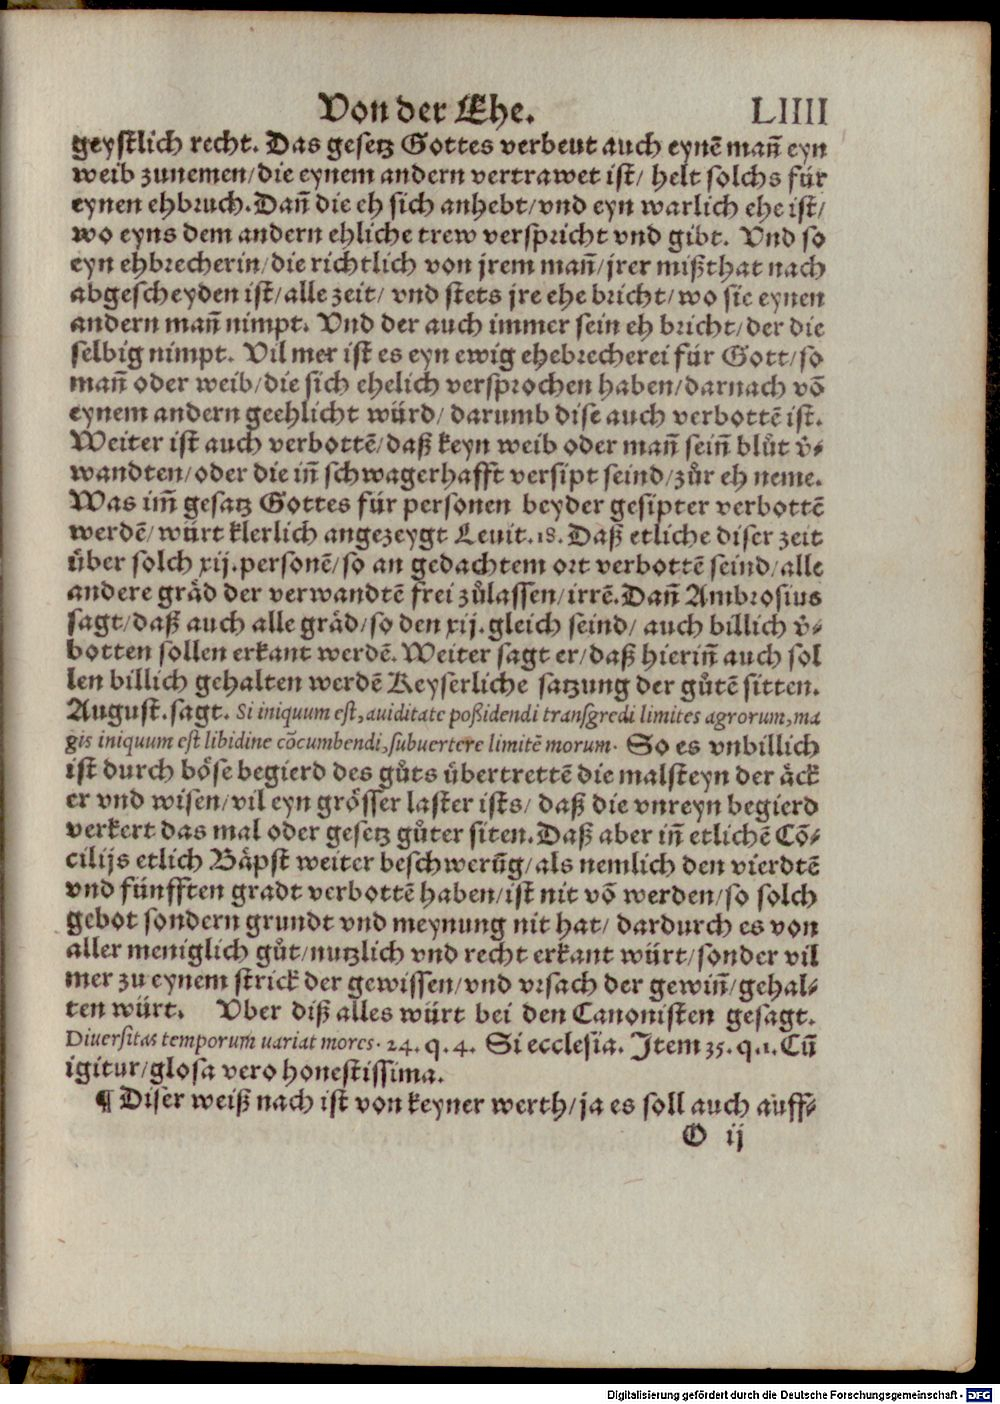 Von der Ehe. LIIII
geystlich recht. Das gesetz Gottes verbeut auch eynē mañ eyn
weib zunemen/die eynem andern vertrawet ist/ helt solchs für
eynen ehbruch. Dañ die eh sich anhebt/vnd eyn warlich ehe ist/
wo eyns dem andern ehliche trew verspricht vnd gibt. Vnd so
eyn ehbrecherin/die richtlich von jrem mañ/jrer mißthat nach
abgescheyden ist/alle zeit/ vnd stets jre ehe bricht/wo sie eynen
andern mañ nimpt. Vnd der auch immer sein eh bricht/der die
selbig nimpt. Vil mer ist es eyn ewig ehebrecherei für Gott/so
mañ oder weib/die sich ehelich versprochen haben/darnach vō
eynem andern geehlicht würd/ darumb dise auch verbottē ist.
Weiter ist auch verbottē/daß keyn weib oder mañ seiñ blůt v̄-
wandten/oder die iñ schwagerhafft versipt seind/zůr eh neme.
Was im̄ gesatz Gottes für personen beyder gesipter verbottē
werdē/würt klerlich angezeygt Leuit.18. Daß etliche diser zeit
über solch xij.personē/so an gedachtem ort verbottē seind/alle
andere gräd der verwandtē frei zůlassen/irrē. Dañ Ambrosius
sagt/daß auch alle gräd/so den xij.gleich seind/ auch billich v̄-
botten sollen erkant werdē. Weiter sagt er/daß hieriñ auch sol
len billich gehalten werdē Keyserliche satzung der gůtē sitten.
August.sagt. Si iniquum est, auiditate poßidendi transgredi limites agrorum, ma
gis iniquum est libidine cōcumbendi, subuertere limitē morum. So es vnbillich
ist durch böse begierd des gůts übertrettē die malsteyn der äck
er vnd wisen/vil eyn grösser laster ists/ daß die vnreyn begierd
verkert das mal oder gesetz gůter siten. Daß aber iñ etlichē Cō-
cilijs etlich Bäpst weiter beschwerūg/als nemlich den vierdtē
vnd fünfften gradt verbottē haben/ist nit vō werden/so solch
gebot sondern grundt vnd meynung nit hat/ dardurch es von
aller meniglich gůt/nutzlich vnd recht erkant würt/sonder vil
mer zu eynem strick der gewissen/vnd vrsach der gewiñ/gehal-
ten würt. Vber diß alles würt bei den Canonisten gesagt.
Diuersitas temporum uariat mores. 24. q. 4. Si ecclesia. Item 35. q.1. Cū
igitur/glosa vero honestissima.
¶ Diser weiß nach ist von keyner werth/ja es soll auch auff-
O ij
Digitalisierung gefördert durch die Deutsche Forschungsgemeinschaft - DFG